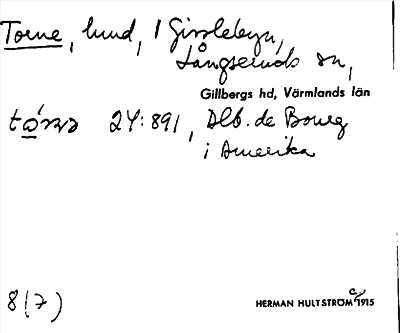 Torne, hund, i Gisslebyn,
Långseruds sn,
Gillbergs hd, Värmlands län
24:891, Alb. de Bourg
i Amerika
8 (7)
HERMAN HULTSTRÖM c. 1915